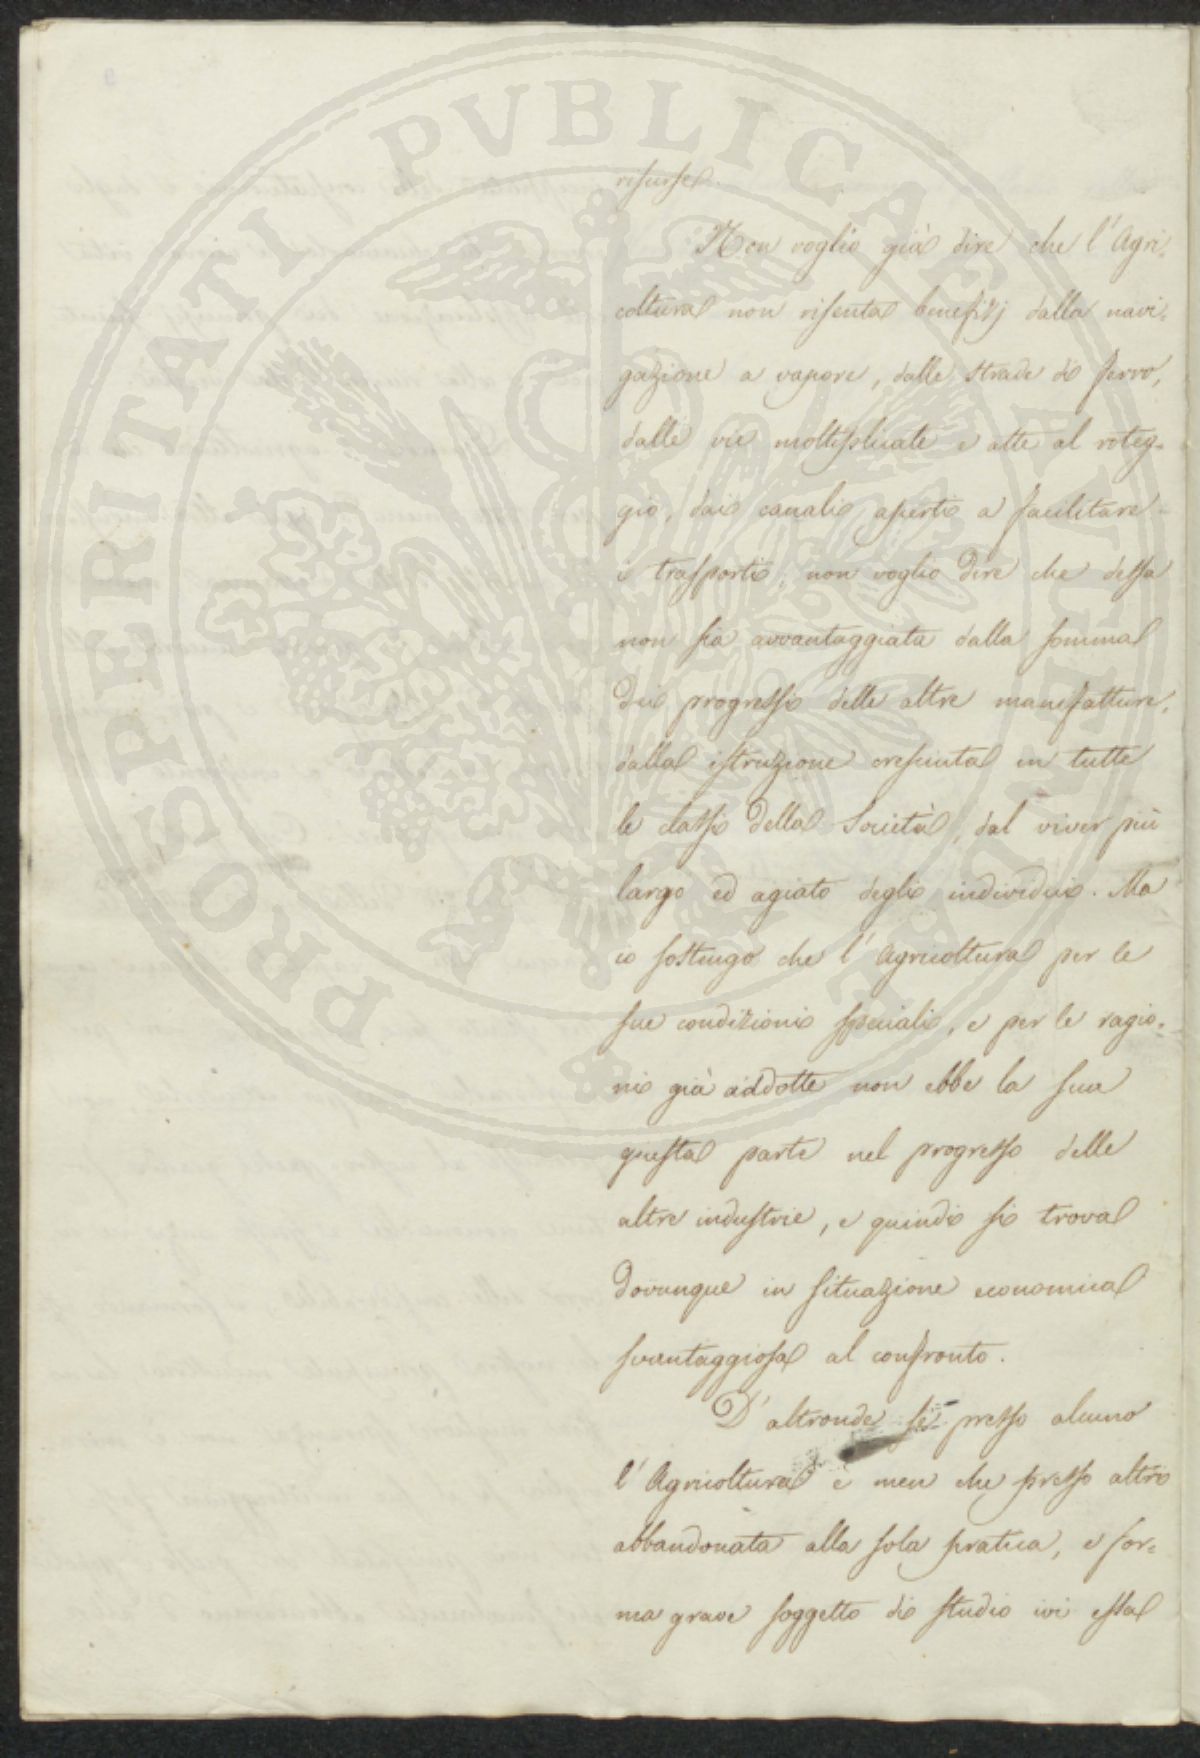 PROSPERITATI PVBLICAE AVGENDAE
risorse.
Non voglio già dire che l'Agri-
coltura non risenta benefizj dalla navi-
gazione a vapore, dalle strade di ferro,
dalle vie moltiplicate e atte al roteg-
gio, dai canali aperti a facilitare
i trasporti; non voglio dire che dessa
non sia avvantaggiata dalla somma
dei progressi delle altre manifatture,
dalla istruzione cresciuta in tutte
le classi della Società, dal viver più
largo ed agiato degli individui. Ma
io sostengo che l'Agricoltura per le
sue condizioni speciali, e per le ragio-
ni già addotte non ebbe la sua
giusta parte nel progresso delle
altre industrie, e quindi si trova
dovunque in situazione economica
svantaggiosa al confronto.
D'altronde se presso alcuno
l'Agricoltura è men che presso altri
abbandonata alla sola pratica, e for-
ma grave soggetto di studio ivi essa